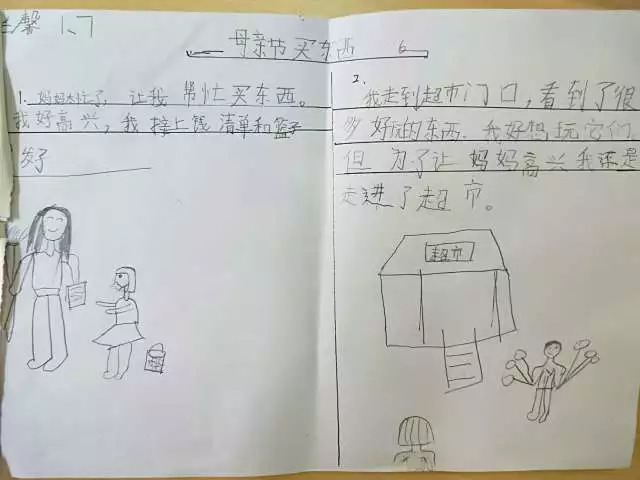 馨 1、7
母亲节买东西 6
1. 妈妈太忙了，让我 帮忙买东西。
我好高兴，我 接上钱 清单和篮子
发了
2.
我走到超市门口，看到了很
多 好玩的东西. 我好想玩它们
但 为了让 妈妈高兴我还是
走进了超市。
超市